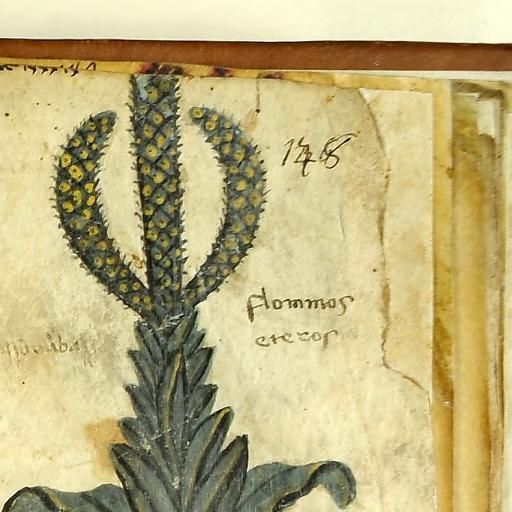 148
flommos
eteros